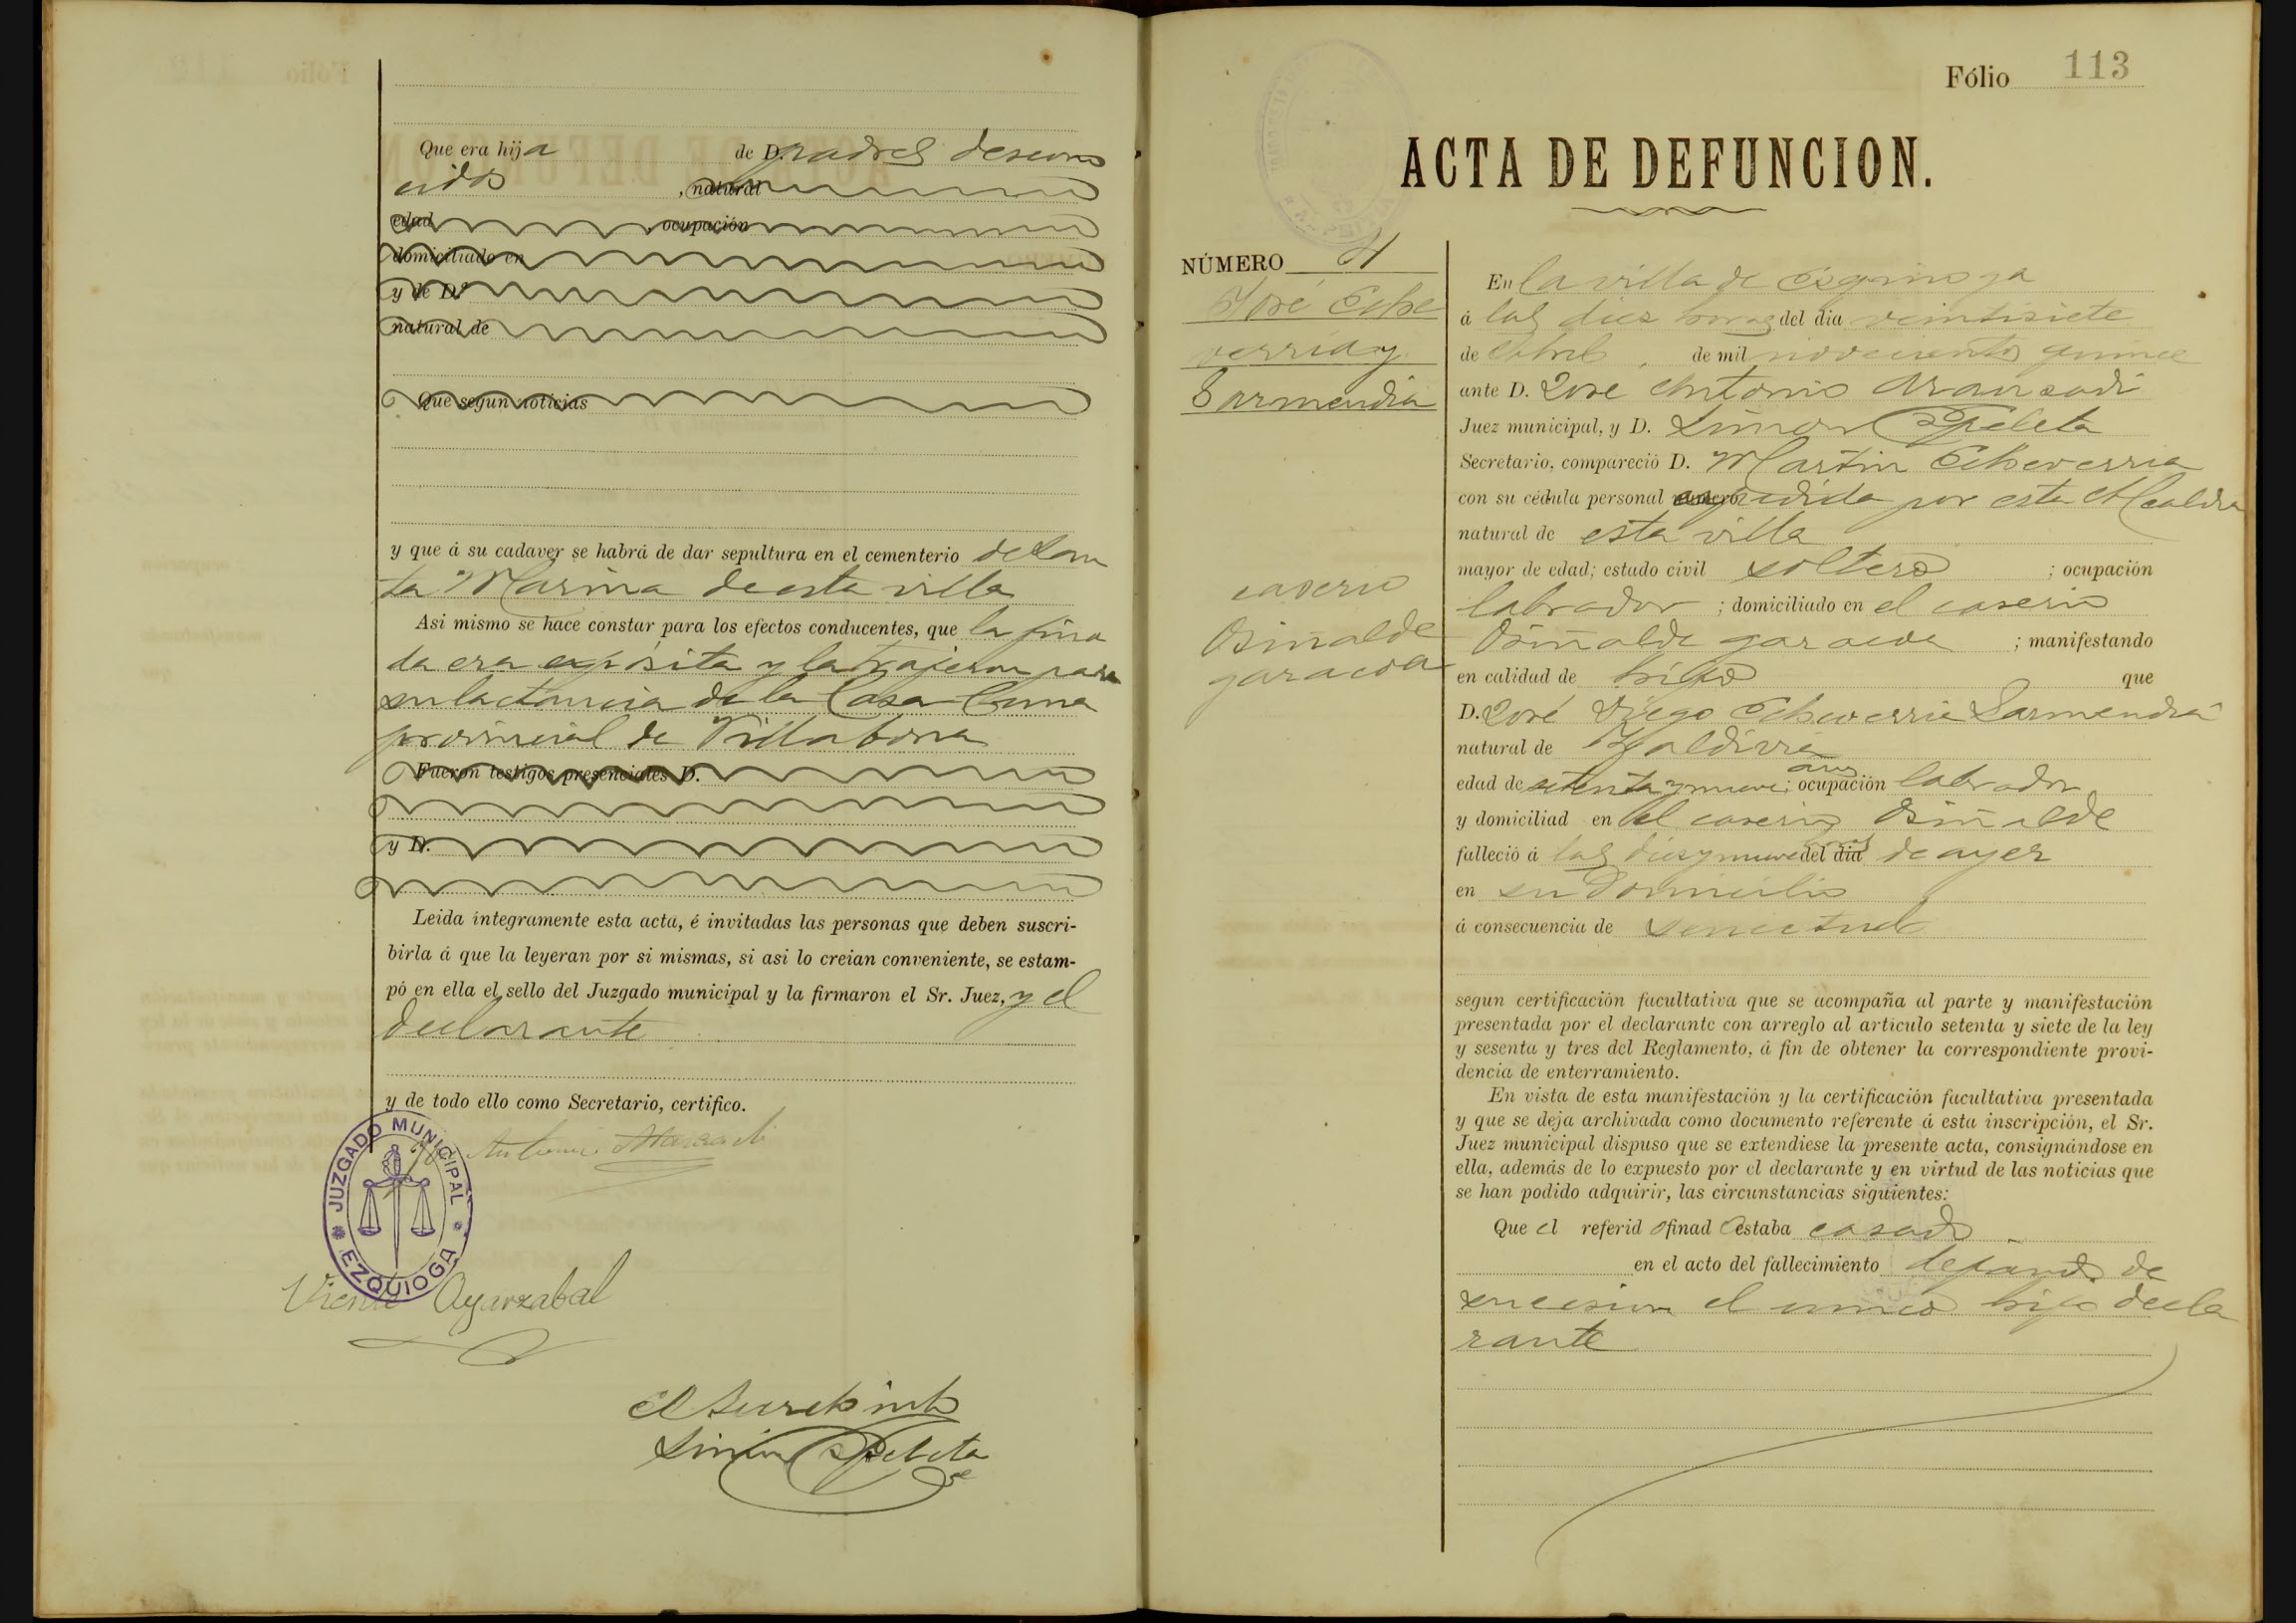 Que era hija de D. padres descono
cidos , natural
edad ocupación
domiciliado en
y de D.ª
natural de
Que segun noticias
y que á su cadaver se habrá de dar sepultura en el cementerio de San
ta Marina de esta villa
Asi mismo se hace constar para los efectos conducentes, que la fina
da era expósita y la trajeron para
su lactancia de la Casa Cuna
provincial de Villabona
Fueron testigos presenciales D.
y D.
Leida integramente esta acta, é invitadas las personas que deben suscri-
birla á que la leyeran por si mismas, si asi lo creian conveniente, se estam-
pó en ella el sello del Juzgado municipal y la firmaron el Sr. Juez, y el
declarante
y de todo ello como Secretario, certifico.
Antonio Aranzadi
JUZGADO MUNICIPAL
EZQUIOGA
Vicente Oyarzabal
El Secretario
Simón Apeleta
Fólio 113
ACTA DE DEFUNCION.
NÚMERO 4
José Eche
verria y
Sarmendia
caserio
Osinalde
garacoa
En la villa de Ezquioga
á las diez horas del dia veintisiete
de Abril de mil novecientos quince
ante D. José Antonio Aranzadi
Juez municipal, y D. Simon Apeleta
Secretario, compareció D. Martin Echeverria
con su cédula personal numero expedida por esta Alcaldia
natural de esta villa
mayor de edad; estado civil soltero ; ocupación
labrador ; domiciliado en el caserio
Osinalde garacoa ; manifestando
en calidad de hijo que
D. José Diego Echeverria Sarmendia
natural de Zaldivia
edad de setenta y nueve años; ocupación labrador
y domiciliad en el caserio Osinalde
falleció á las diez y nueve horas del dia de ayer
en su domicilio
á consecuencia de senectud
segun certificación facultativa que se acompaña al parte y manifestación
presentada por el declarante con arreglo al articulo setenta y siete de la ley
y sesenta y tres del Reglamento, á fin de obtener la correspondiente provi-
dencia de enterramiento.
En vista de esta manifestación y la certificación facultativa presentada
y que se deja archivada como documento referente á esta inscripción, el Sr.
Juez municipal dispuso que se extendiese la presente acta, consignándose en
ella, además de lo expuesto por el declarante y en virtud de las noticias que
se han podido adquirir, las circunstancias siguientes:
Que el referido finado estaba casado
en el acto del fallecimiento dejando de
sucesion el unico hijo decla
rante